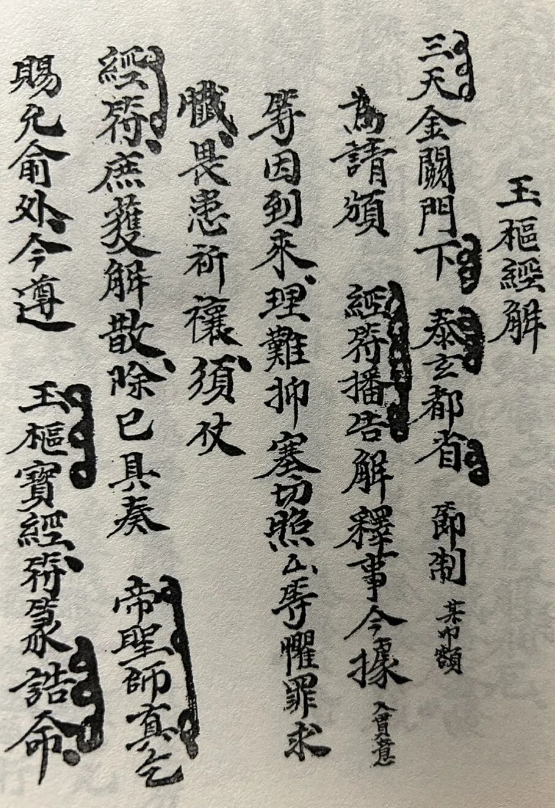 玉樞經解
三天金闕門下 泰玄都省 即制 某巾額
為請頒 經符播告解釋事今據入賞意
等因到來理難抑塞切照厶等懼罪求
懺畏患祈禳須仗
經符庶獲解散除已具奏 帝聖師真乞
賜允俞外今遵 玉樞寶經符篆誥命